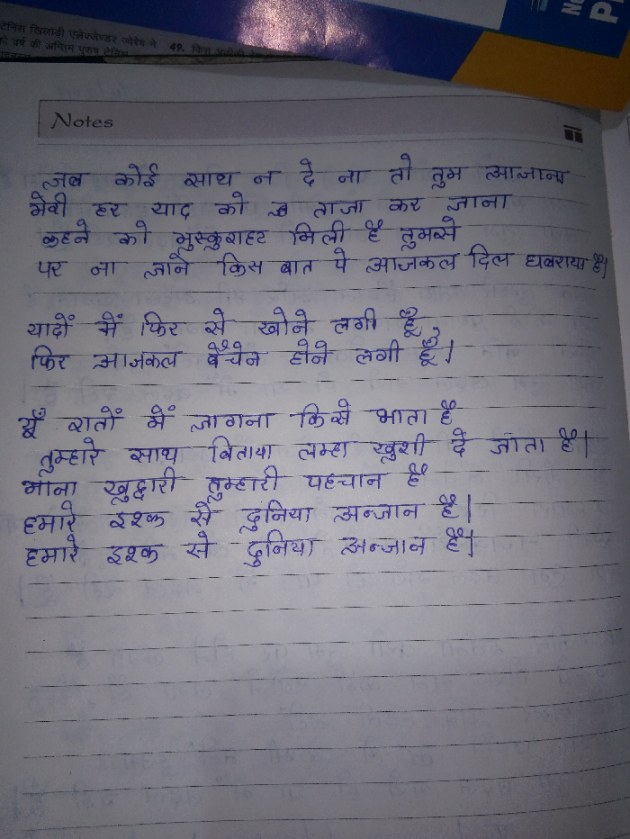 टेनिस खिलाड़ी एलेक्जेण्डर ज्वेरेव ने 49. किस
को वर्ष की अन्तिम पुरुष टेनिस
NO
P
Notes
जब कोई साथ न दे ना तो तुम आजाना
मेरी हर याद को ताजा कर जाना
कहने को मुस्कुराहट मिली है तुमसे
पर ना जाने किस बात पे आजकल दिल घबराया है।
यादों में फिर से खोने लगी हूँ,
फिर आजकल बैचेन होने लगी हूँ।
यूँ रातों में जागना किसे भाता है
तुम्हारे साथ बिताया लम्हा खुशी दे जाता है।
माना खुद्दारी तुम्हारी पहचान है
हमारे इश्क से दुनिया अन्जान है।
हमारे इश्क से दुनिया अन्जान है।